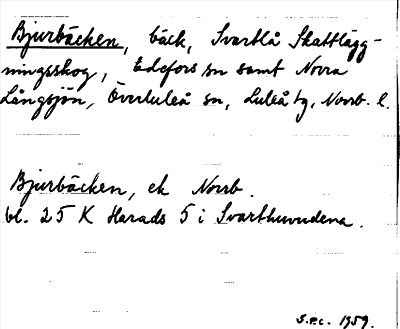 Bjurbäcken, bäck, Svartlå Skattlägg-
ningsskog, Edefors sn samt Norra
Långsjön, Överluleå sn, Luleå tg, Norrb. l.
Bjurbäcken, ek Norrb.
bl. 25 K Harads 5 i Svarthuvudena.
S.P.C. 1959.